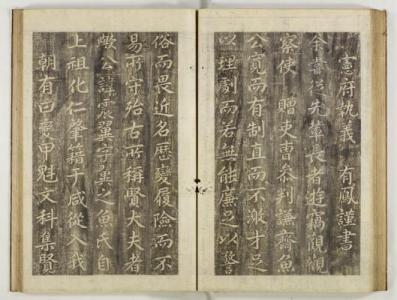 憲府執義 有鳳謹書
余嘗從先輩長者遊竊觀
察使 贈吏曹參判謙齋魚
公寬而有制直而不激才足
以理劇而若無能廉足以警
俗而畏近名歷變履險而不
易所守殆古所稱賢大夫者
歟公諱震翼字翼之魚氏自
上祖化仁肇籍于咸從入我
朝有曰變甲魁文科集賢